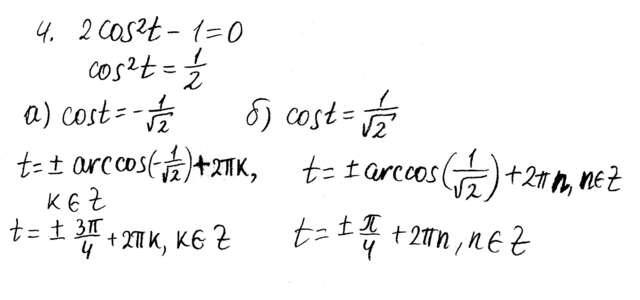 4. 2cos²t - 1 = 0
cos²t = 1/2
а) cost = -1/√2 б) cost = 1/√2
t = ± arccos(-1/√2) + 2πk, t = ± arccos(1/√2) + 2πn, n∈Z
k∈Z
t = ± 3π/4 + 2πk, k∈Z t = ± π/4 + 2πn, n∈Z